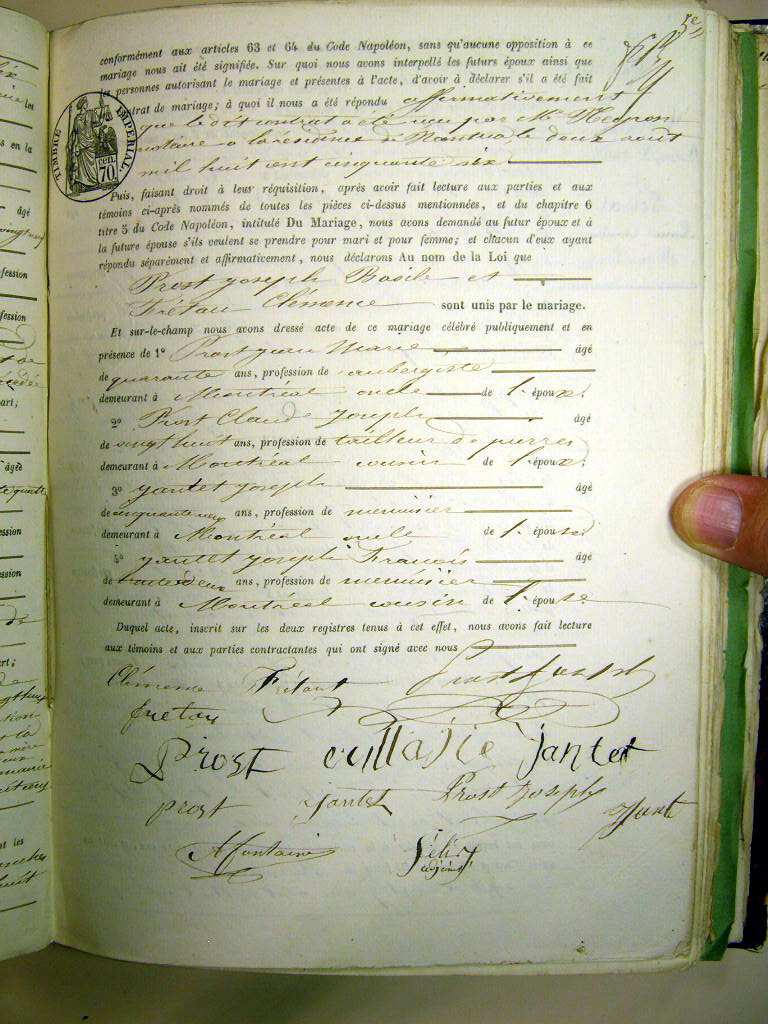 5e
conformément aux articles 63 et 64 du Code Napoléon, sans qu'aucune opposition à ce
mariage nous ait été signifiée. Sur quoi nous avons interpellé les futurs époux ainsi que
les personnes autorisant le mariage et présentes à l'acte, d'avoir à déclarer s'il a été fait
contrat de mariage; à quoi il nous a été répondu affirmativement
que le dit contrat a été reçu par Me
notaire à la résidence de Nantua, le deux août
mil huit cent cinquante six
TIMBRE IMPÉRIAL
70 cen.
Puis, faisant droit à leur réquisition, après avoir fait lecture aux parties et aux
témoins ci-après nommés de toutes les pièces ci-dessus mentionnées, et du chapitre 6
titre 5 du Code Napoléon, intitulé Du Mariage, nous avons demandé au futur époux et à
la future épouse s'ils veulent se prendre pour mari et pour femme; et chacun d'eux ayant
répondu séparément et affirmativement, nous déclarons Au nom de la Loi que
Prost Joseph Basile et
Frétau Clémence sont unis par le mariage.
Et sur-le-champ nous avons dressé acte de ce mariage célébré publiquement et en
présence de 1° Prost Jean Marie âgé
de quarante ans, profession de aubergiste
demeurant à Montréal oncle de l'époux;
2° Prost Claude Joseph âgé
de vingt huit ans, profession de tailleur de pierres
demeurant à Montréal cousin de l'époux;
3° Jantet Joseph âgé
de cinquante ans, profession de menuisier
demeurant à Montréal oncle de l'épouse
4° Jantet Joseph François âgé
de trente deux ans, profession de menuisier
demeurant à Montréal cousin de l'épouse
Duquel acte, inscrit sur les deux registres tenus à cet effet, nous avons fait lecture
aux témoins et aux parties contractantes qui ont signé avec nous
Clémence Frétaut Prost Joseph
fretau
Prost Jantet
prost Jantet Prost Joseph Jante
A Fontaine Félix
adjoint